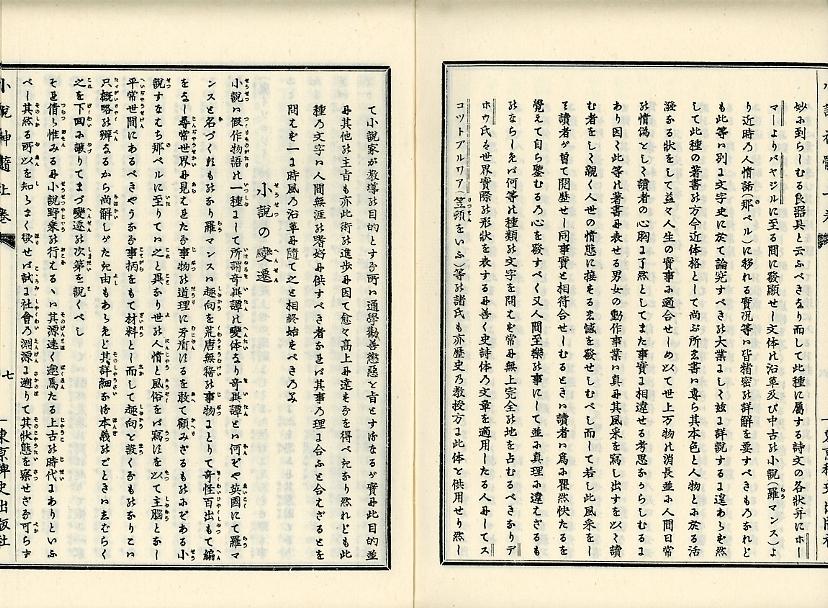 妙に到らしむる良器具と云ふべきなり而して此種に屬する詩文の各狀幷にホー
マーよりバヤジルに至る間に發顯せし文体の沿革及び中古の小說(羅マンス)よ
り近時の人情話(那ベル)に移れる實況等は皆精密の詳解を要すべきものなれど
も此等は別に文字史に於て論究すべきの大業にして玆に詳說するに遑あらず然
して此種の著書の方今近体格として尙ぶ所は專ら其本色と人物とに於る活
潑なる狀をして益々人生の實事に適合せしめ以て世上万物の消長並に人間日常
の情僞をして讀者の心胸に了然としてまた事實に相違せる考思なからしむるに
あり因て此等の著書に表せる男女の動作事業は眞に其風采を寫し出すを以て讀
む者をして親く人世の情態に接する感を發せしむべし而して若し此風采をし
て讀者が曾て閱歷せし同事實と相符合せしむるときは讀者は爲に瞿然快たるを
覺えて自ら鑒むるの心を發すべく又人間至樂の事にして並に眞理に違ざるも
のならしめば何等の種類の文字を問はず常に無上完全の地を占むるべきなりデ
ホウ氏は世界實際の形狀を表するに善く史詩体の文章を適用したる人にしてス
コツトブルワア(をいふ)等の諸氏も亦歷史の敎授方に此体を供用せり然し
て小說家が敎導の目的とする所は通學勸善懲惡を旨とするなるが實は此目的並
に其他の主旨も亦此術の進步に因て愈々高上に達するを得べきなり然れども此
種の文字は人間無涯の嗜好に供すべき者なれば其事の理に合ふと合はざるとを
問はず一に時風の沿革に隨て之と相終始すべきのみ
小說の變遷
小說は假作物語の一種にして所謂奇異譚の變体なり奇異譚とは何ぞや英國にて羅マ
ンスと名づくるものなり羅マンスは趣向を荒唐無稽の事物にとりて奇怪百出もて編
をなし尋常世界に見えたる事物の道理に矛盾するを敢て顧みざるものにぞある小
說すなはち那ベルに至りては之と異なり世の人情と風俗をば寫すを以て主腦となし
平常世間にあるべきやうなる事柄をもて材料として而して趣向を設くるものなりこは
只概略の辨なるから尙解しがたき由もあらんなれど其詳細なるは本義のときにいふべく
之を下囘に讓りてまづ變遷の次第を說くべし
そも假り惟みるに小說野乘の行はるるは其源遠く邈焉たる上古の時代にありといふ
べし其然る所以を知らまく欲せば試に社會の淵源に遡りて其狀態を察せざる可らず
小說神髓上卷
七
東京稗史出版社